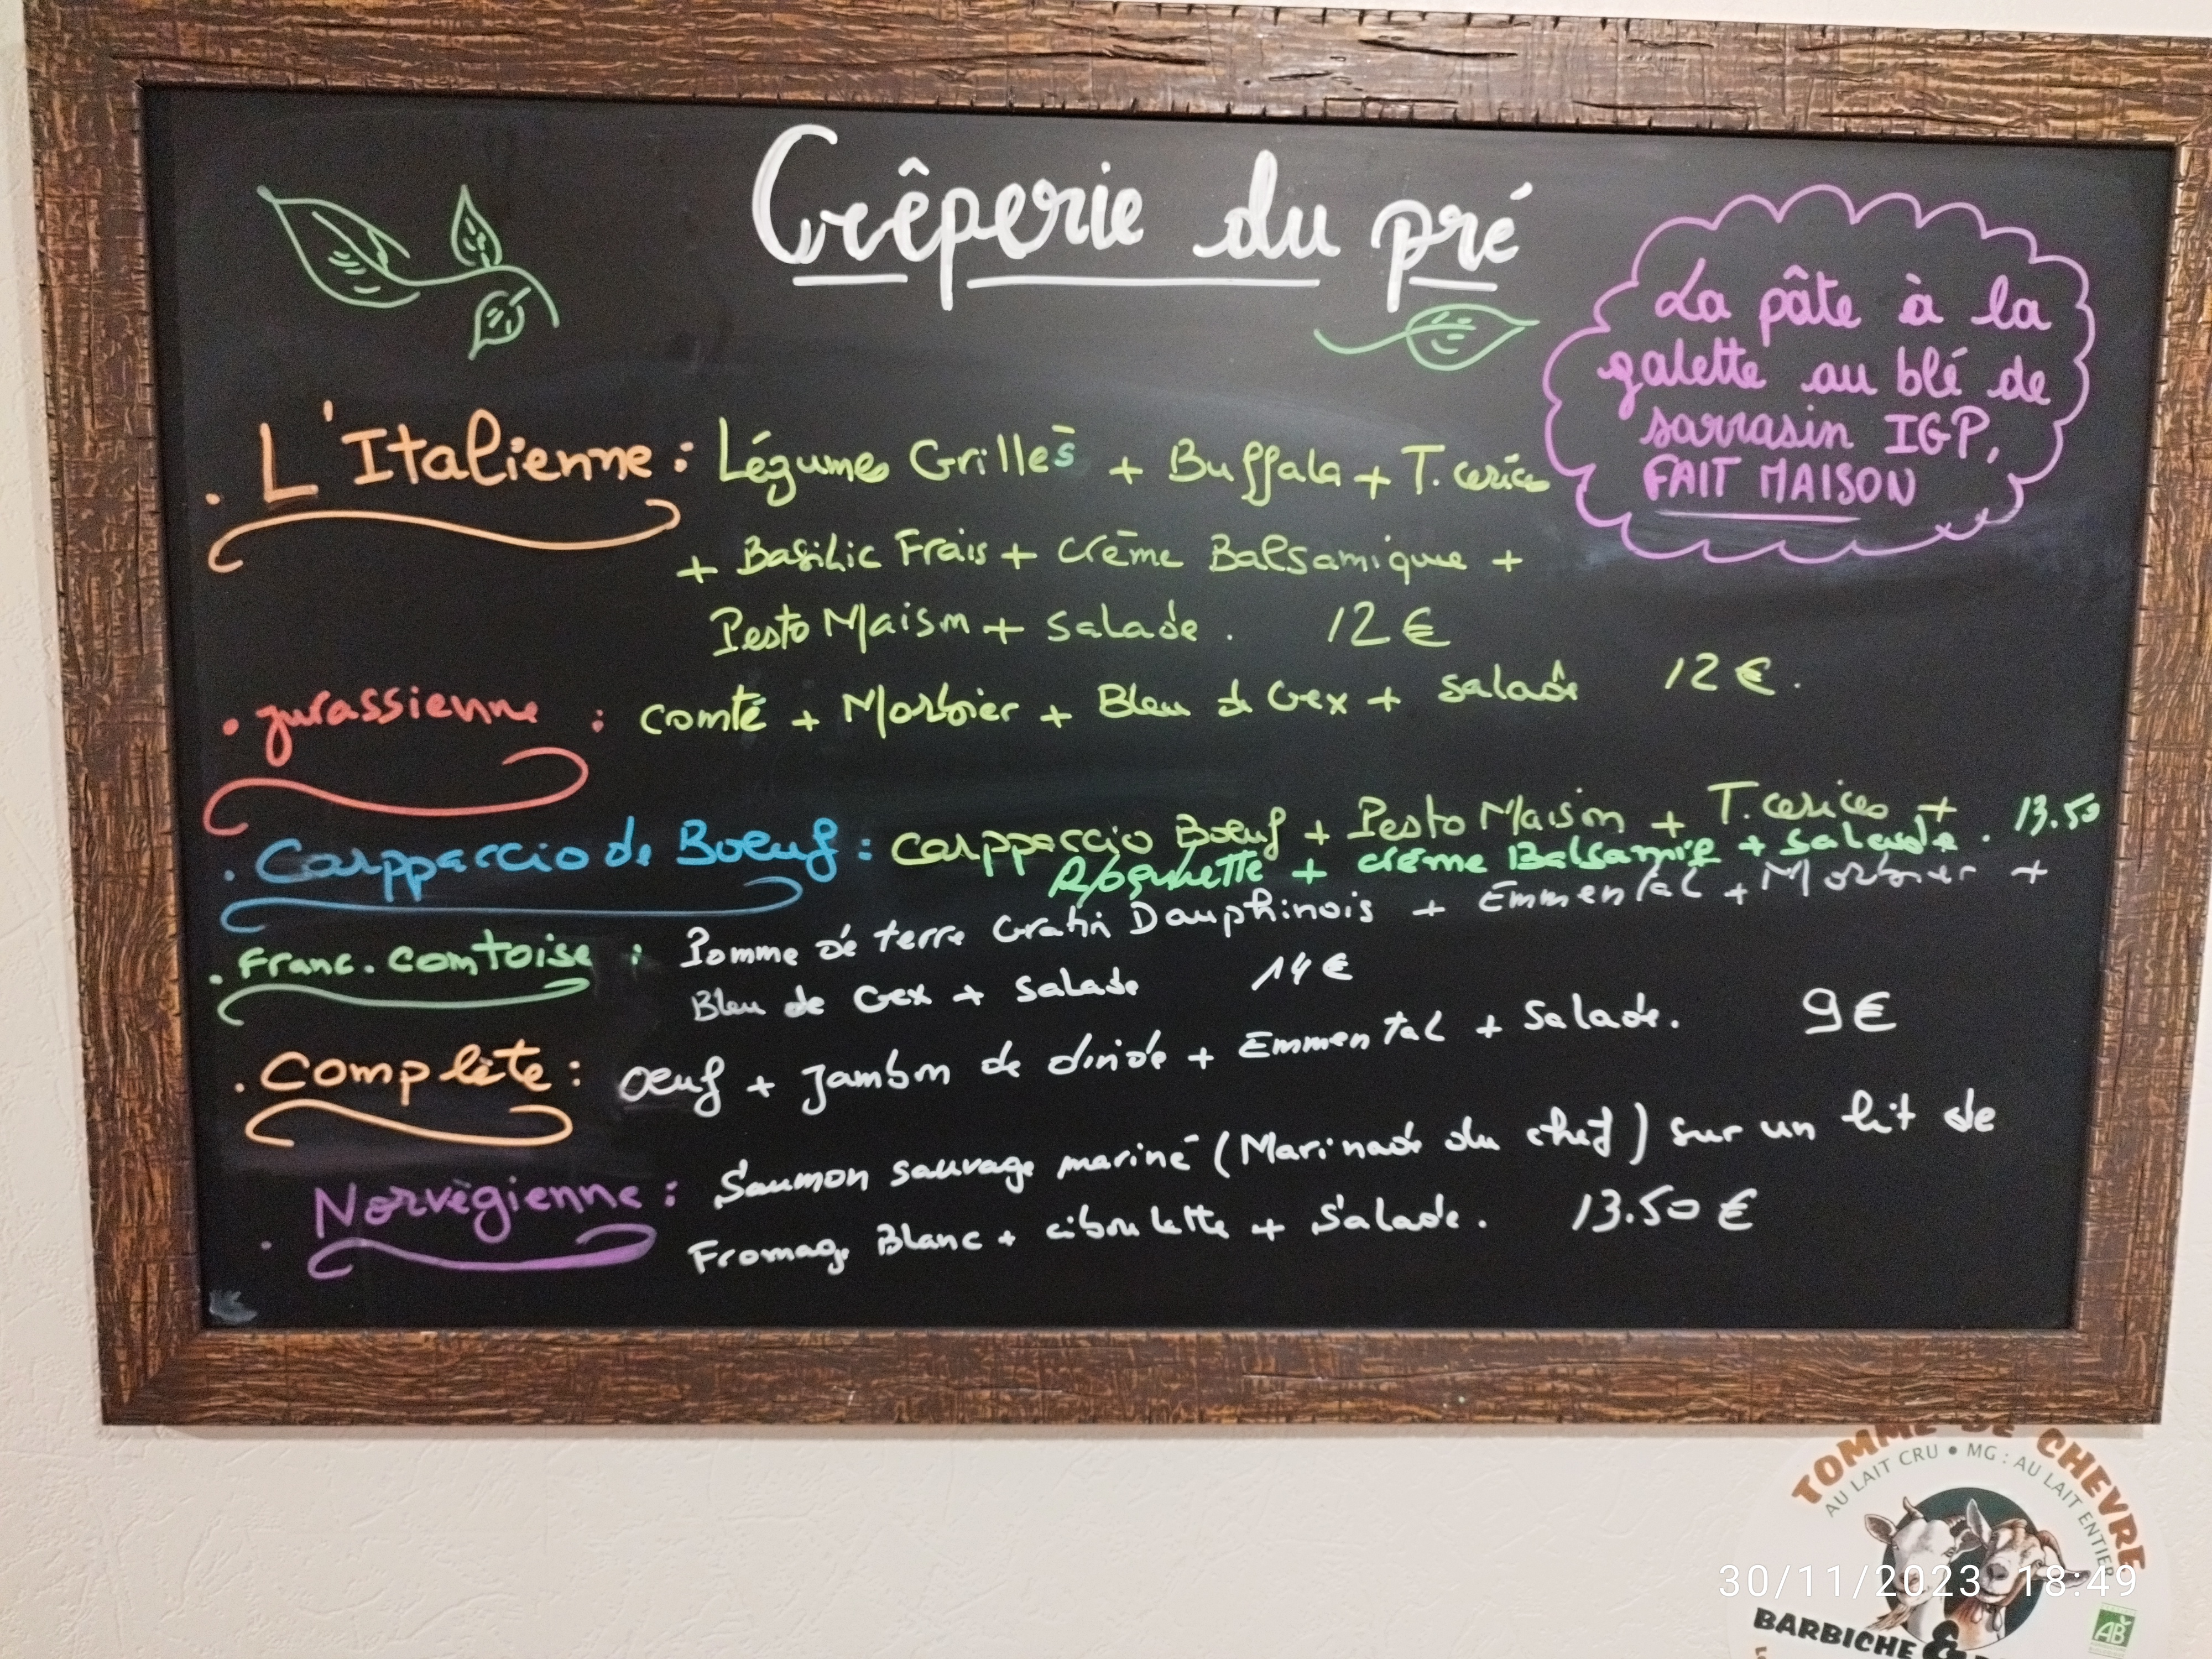 Crêperie du pré
La pâte à la
galette au blé de
sarrasin IGP,
FAIT MAISON
. L'Italienne : Légumes Grillés + Buffala + T. cerices
+ Basilic Frais + crème Balsamique +
Pesto Maison + salade . 12 €
. jurassienne : comté + Morbier + Bleu de Gex + salade 12 € .
. Carppaccio de Boeuf : carppaccio Boeuf + Pesto Maison + T. cerices +
Roquette + crème Balsamie + salade . 13.50
. Franc. comtoise : Pomme de terre Gratin Dauphinois + Emmental + Morbier +
Bleu de Gex + salade 14 €
. Complète : Oeuf + Jambon de dinde + Emmental + Salade. 9 €
. Norvègienne : Saumon sauvage mariné (Marinade du chef) sur un lit de
Fromage Blanc + ciboulette + Salade. 13.50 €
TOMME DE CHEVRE
AU LAIT CRU • MG : AU LAIT ENTIER
30/11/2023 18:49
BARBICHE &
AB